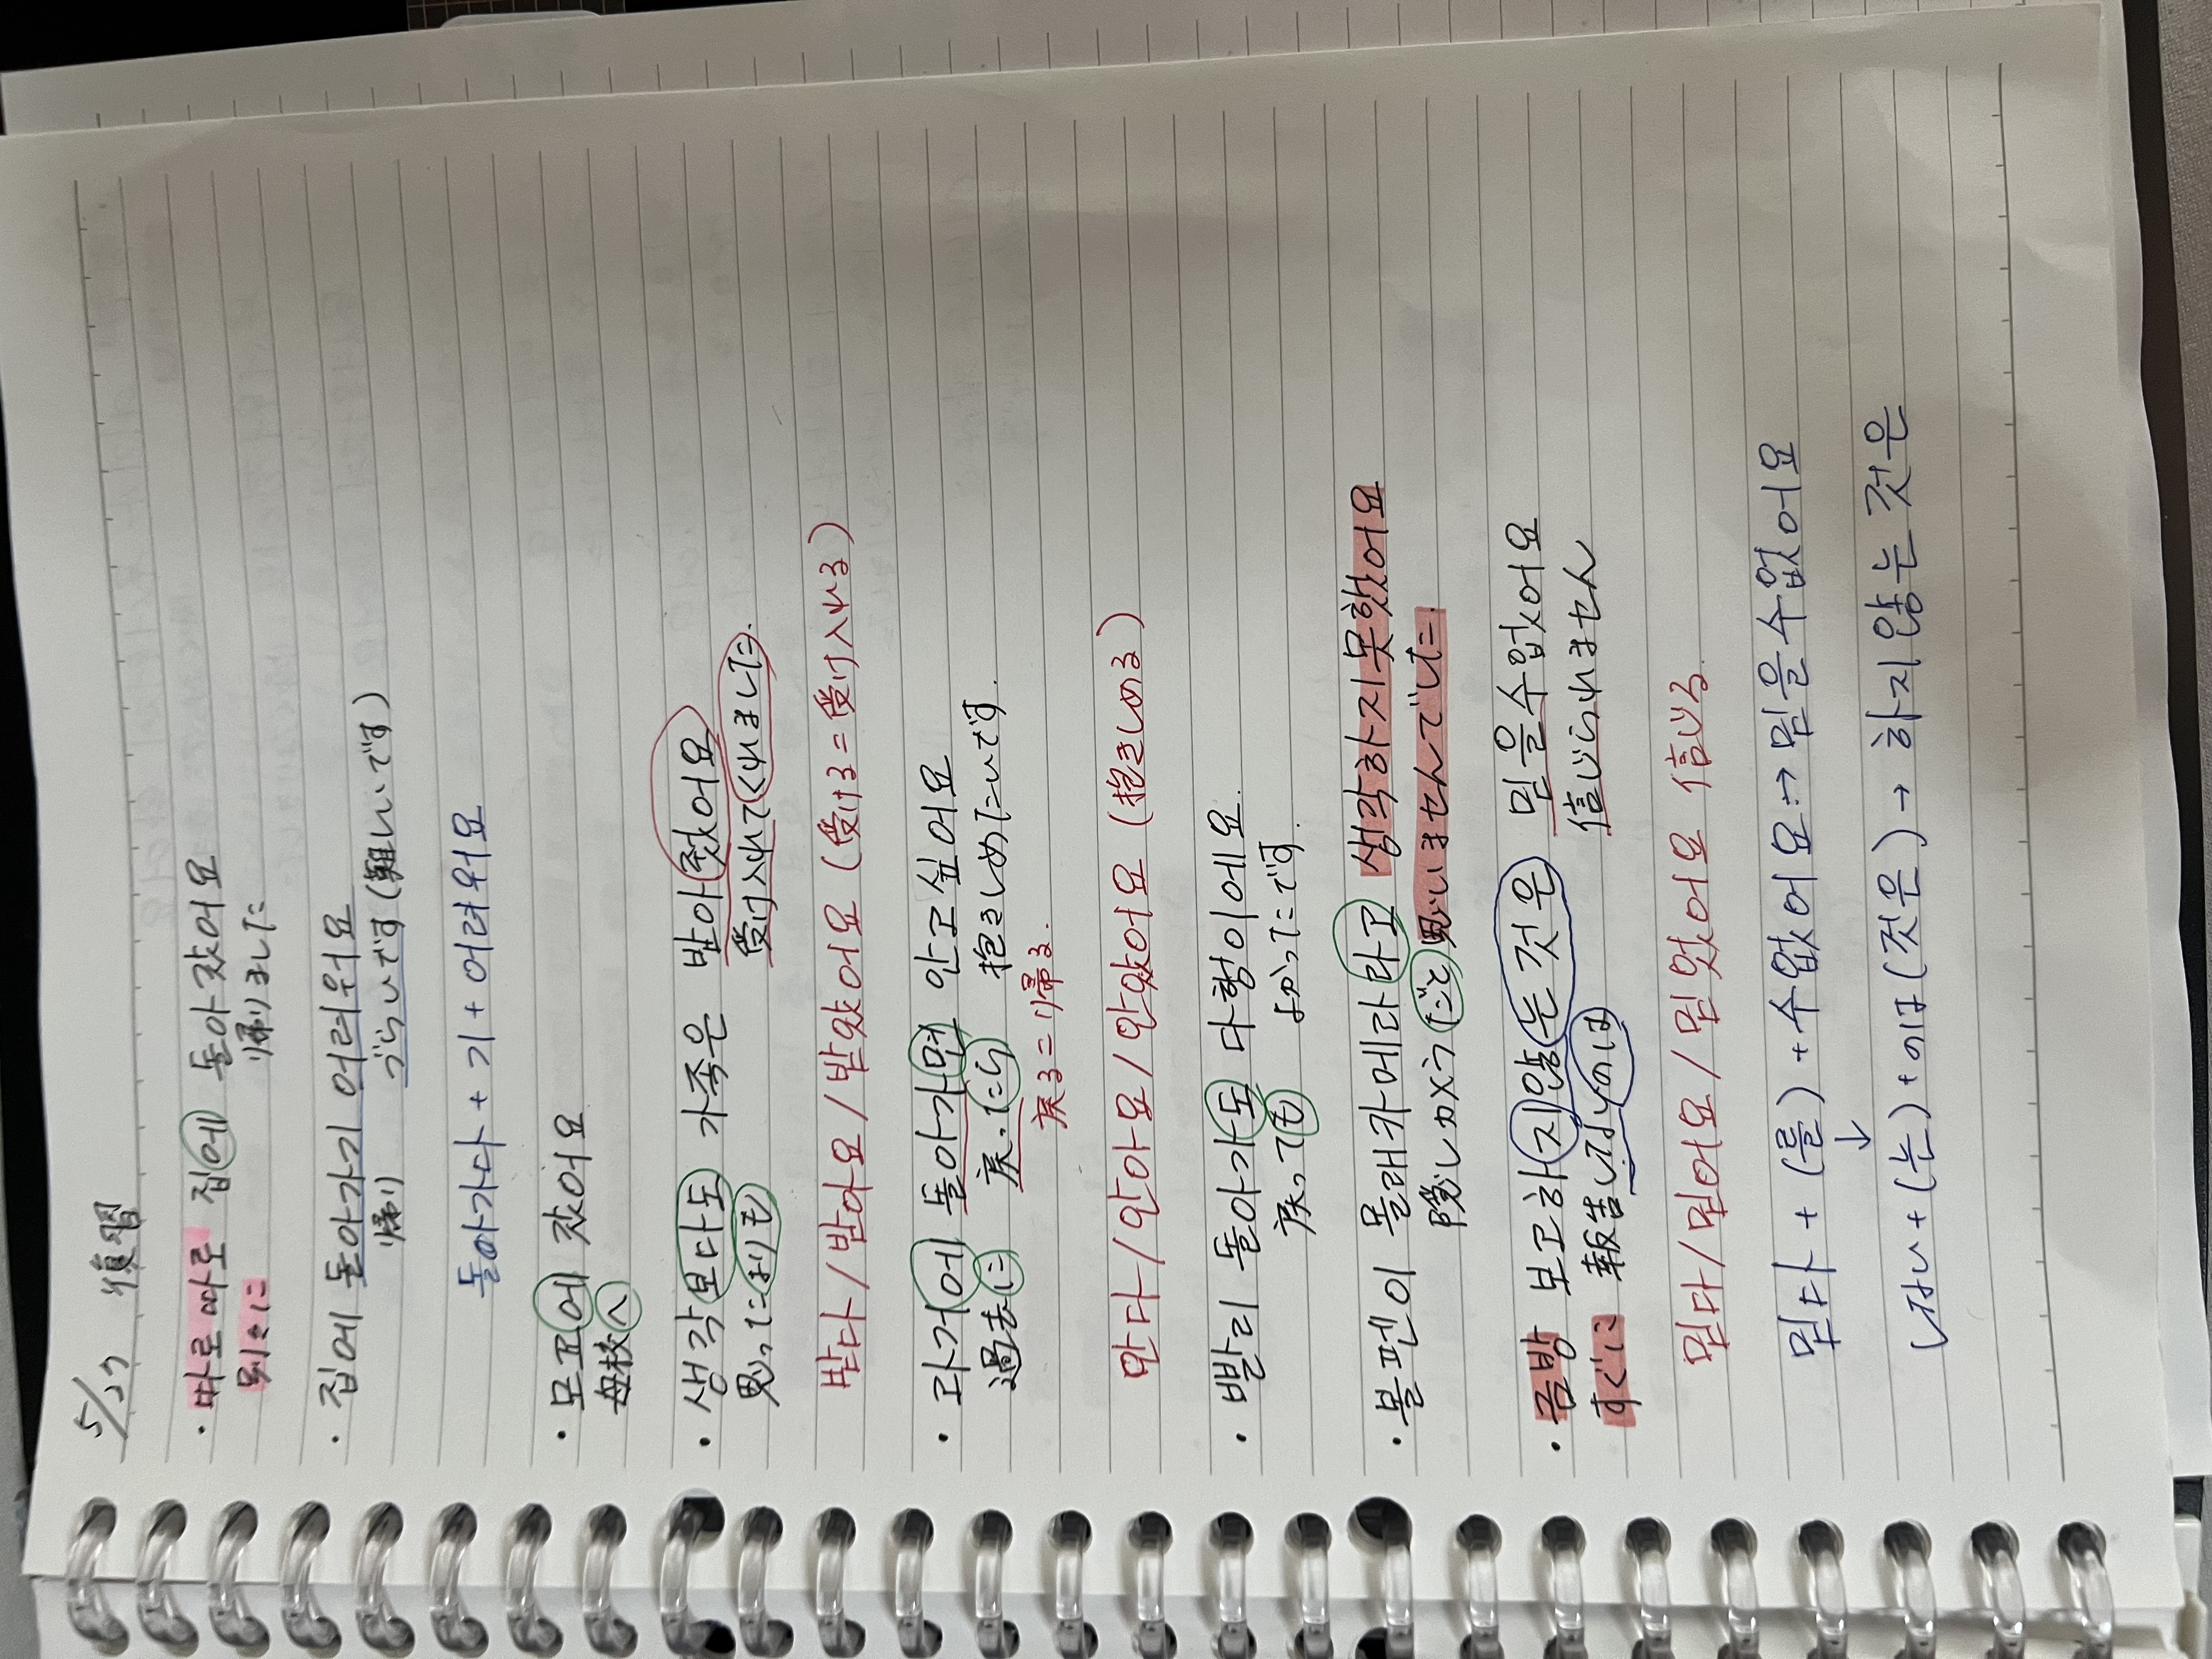 5/27 復習
・따로따로 집에 돌아갔어요
別々に 帰りました
・집에 돌아가기 어려워요
帰り づらいです(難しいです)
돌아가다 + 기 + 어려워요
・모교에 갔어요
母校へ
・생각보다도 가족은 받아줬어요
思ったよりも 受け入れてくれました.
받다/받아요/받았어요 (受ける=受け入れる)
・과거에 돌아가면 안고싶어요
過去に 戻ったら 抱きしめたいです.
戻る=帰る.
안다/안아요/안았어요 (抱きしめる)
・빨리 돌아가도 다행이에요.
戻っても よかったです.
・볼펜이 몰래카메라라고 생각하지못했어요
隠しカメラだと思いませんでした.
・금방 보고하지않는 것은 믿을수없어요
すぐに 報告しないのは 信じられません
믿다/믿어요/믿었어요 信じる.
믿다 + (를) + 수없어요→믿을수없어요
↓
しない+(는)+のは(것은)→하지않는 것은